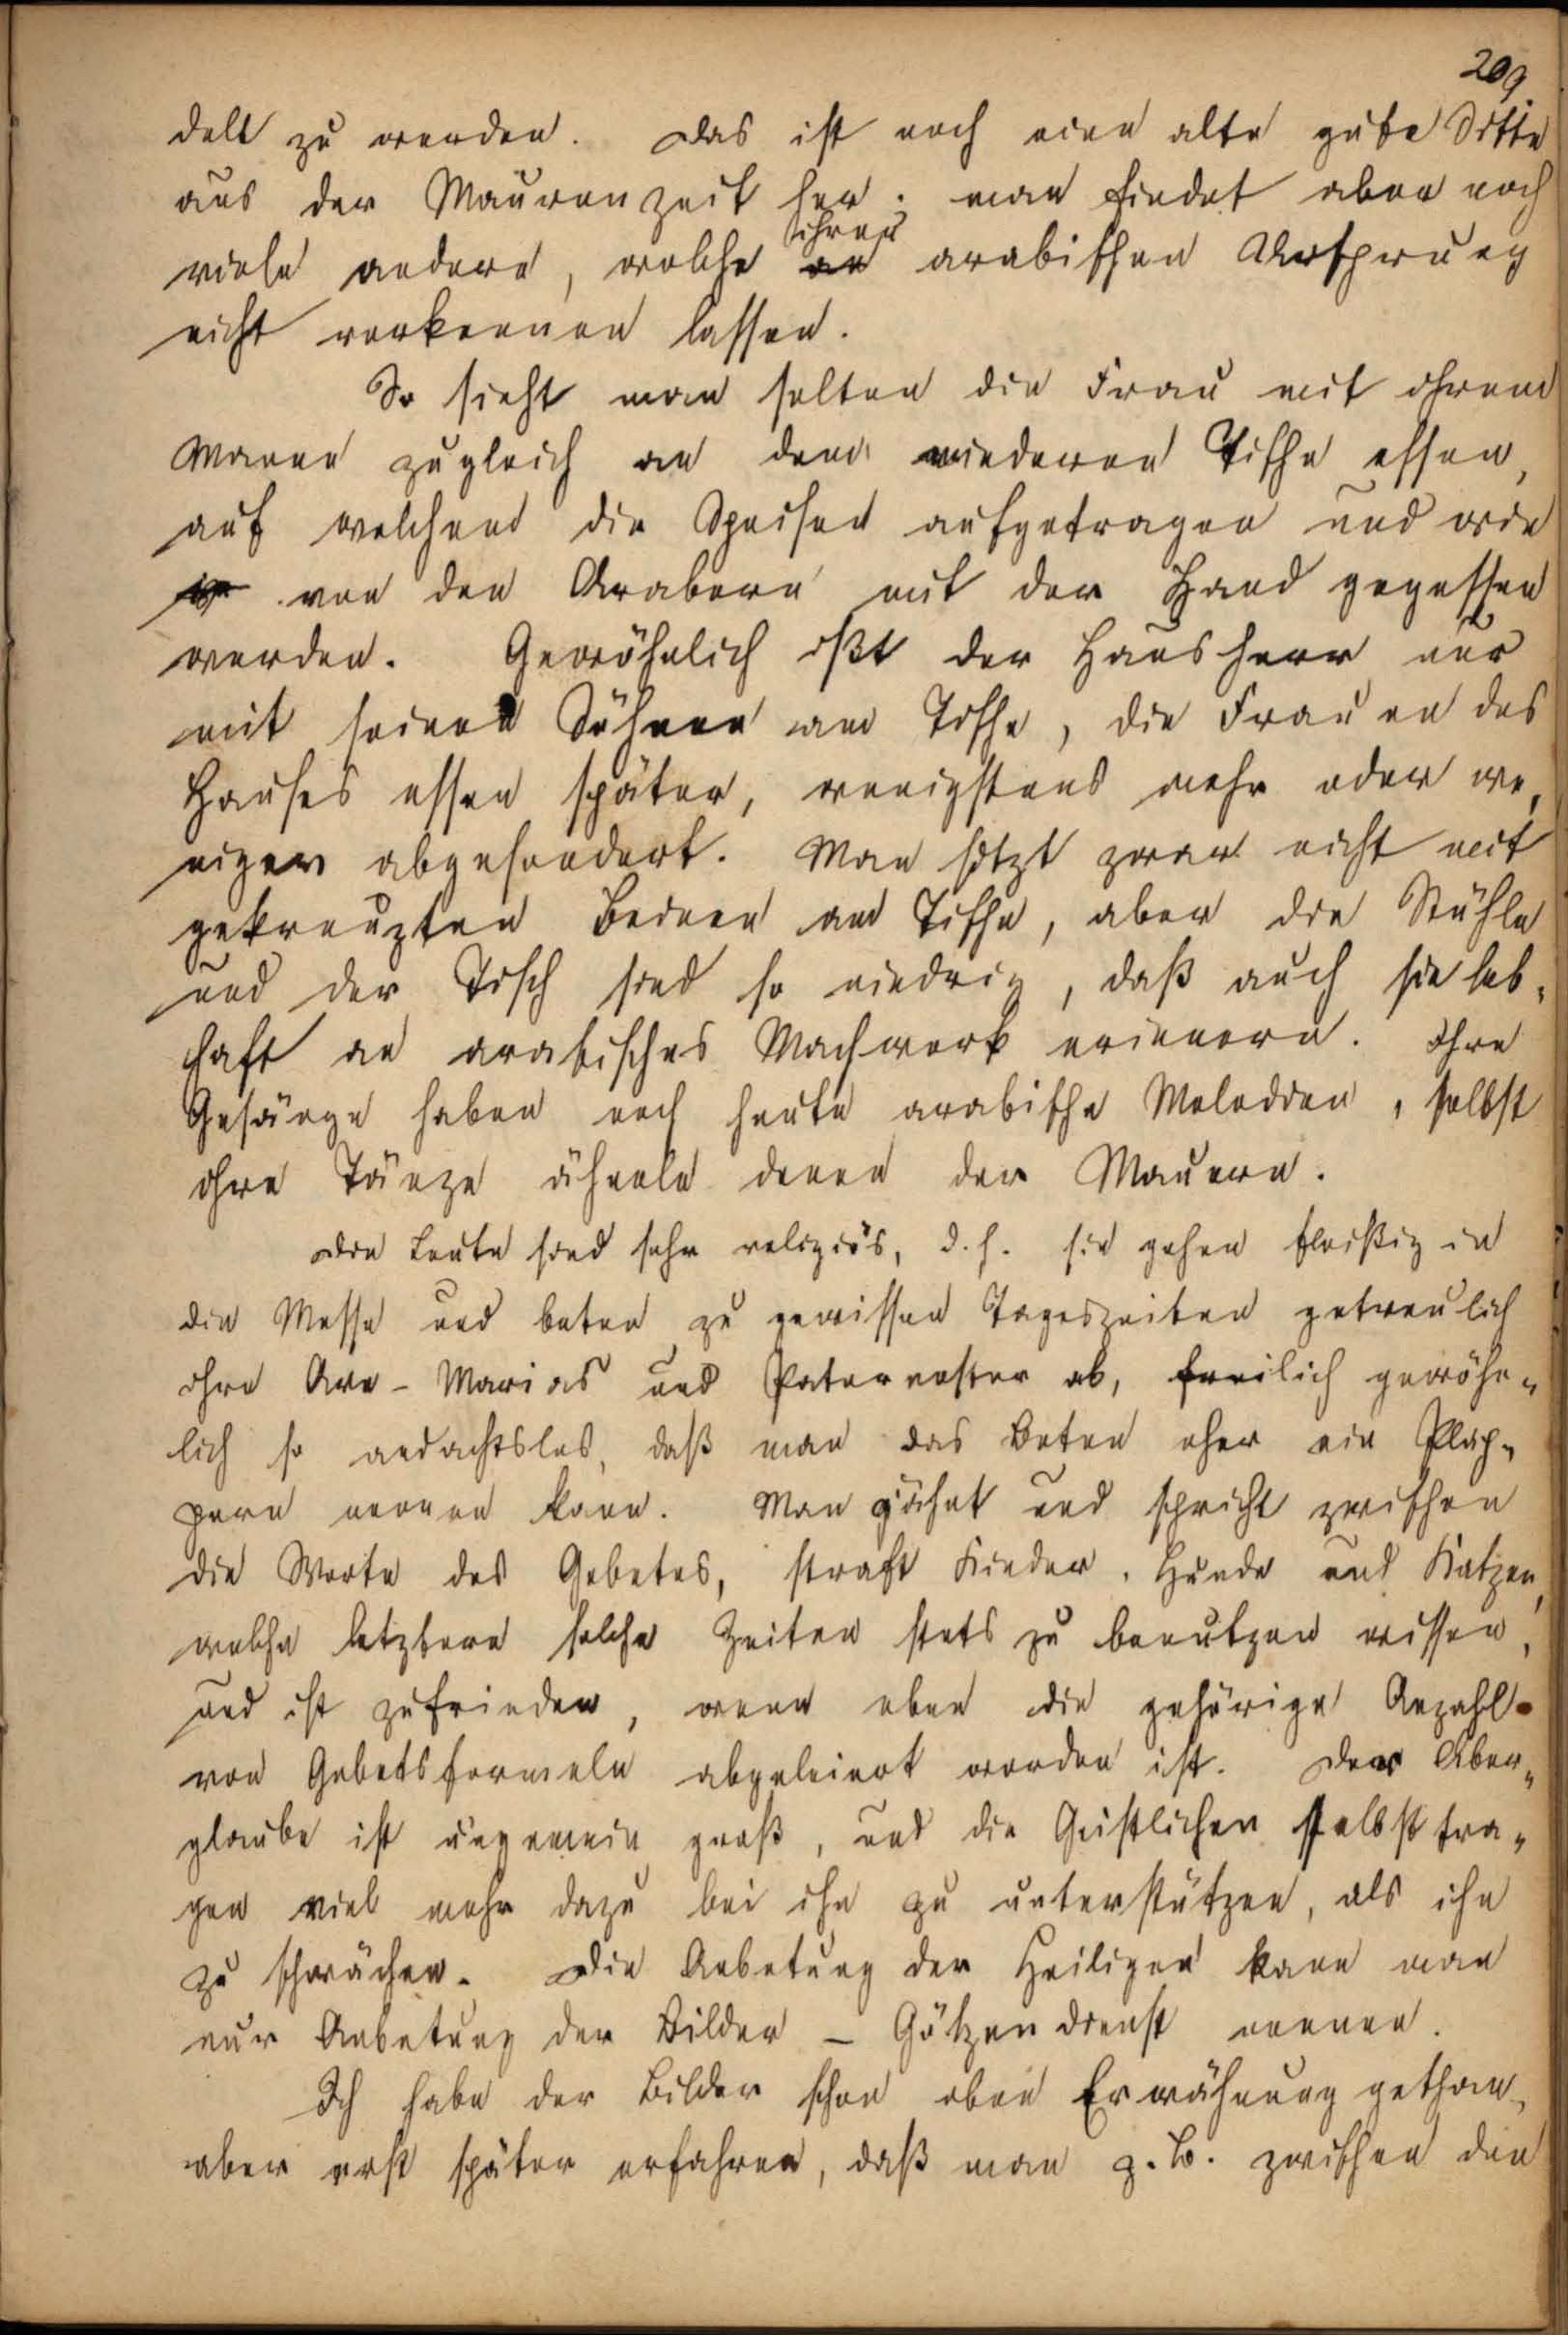 209
delt zu werden. Das ist noch eine alte gute Sitte
aus der Maurenzeit her; man findet aber noch
viele andere, welche ihren arabischen Ursprung
nicht verkennen lassen.
So sieht man selten die Frau mit ihrem
Manne zugleich an dem niederen Tische essen,
auf welchem die Speisen aufgetragen und wie
von den Arabern mit der Hand gegessen
werden. Gewöhnlich ißt der Hausherr nur
mit seinen Söhnen am Tische, die Frauen des
Hauses essen später, wenigstens mehr oder we-
niger abgesondert. Man sitzt zwar nicht mit
gekreuzten Beinen am Tische, aber die Stühle
und der Tisch sind so niedrig, daß auch sie leb-
haft an arabisches Machwerk erinnern. Ihre
Gesänge haben noch heute arabische Melodien, selbst
ihre Tänze ähneln denen der Mauren.
Die Leute sind sehr religiös, d. h. sie gehen fleißig in
die Messe und beten zu gewissen Tageszeiten getreulich
ihre Ave-Marias und Paternoster ab, freilich gewöhn-
lich so andachtslos, daß man das Beten eher ein Plap-
pern nennen kann. Man gähnt und spricht zwischen
die Worte des Gebetes, straft Kinder, Hunde und Katzen,
welche letztere solche Zeiten stets zu benutzen wissen,
und ist zufrieden, wenn eben die gehörige Anzahl
von Gebetsformeln abgeleiert worden ist. Der Aber-
glaube ist ungemein groß, und die Geistlichen selbst tra-
gen viel mehr dazu bei ihn zu unterstützen, als ihn
zu schwächen. Die Anbetung der Heiligen kann man
nur Anbetung der Bilder – Götzendienst nennen.
Ich habe der Bilder schon oben Erwähnung gethan,
aber erst später erfahren, daß man z. B. zwischen den